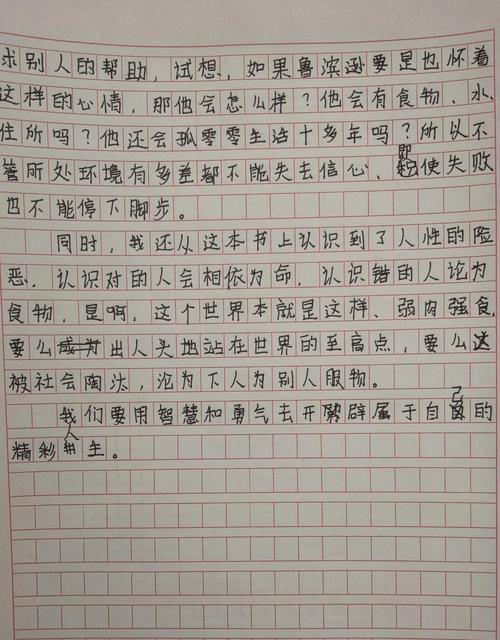 求别人的帮助，试想，如果鲁滨逊要是也怀着
这样的心情，那他会怎么样？他会有食物、水、
住所吗？他还会孤零零生活十多年吗？所以不
管所处环境有多差都不能失去信心、即使失败
也不能停下脚步。
同时，我还从这本书上认识到了人性的险
恶．认识对的人会相依为命，认识错的人论为
食物，是啊，这个世界本就是这样、弱肉强食，
要么出人头地站在世界的至高点，要么这
被社会陶汰，沦为下人为别人服物。
我们要用智慧和勇气去开劈辟属于自己的
精彩人生。